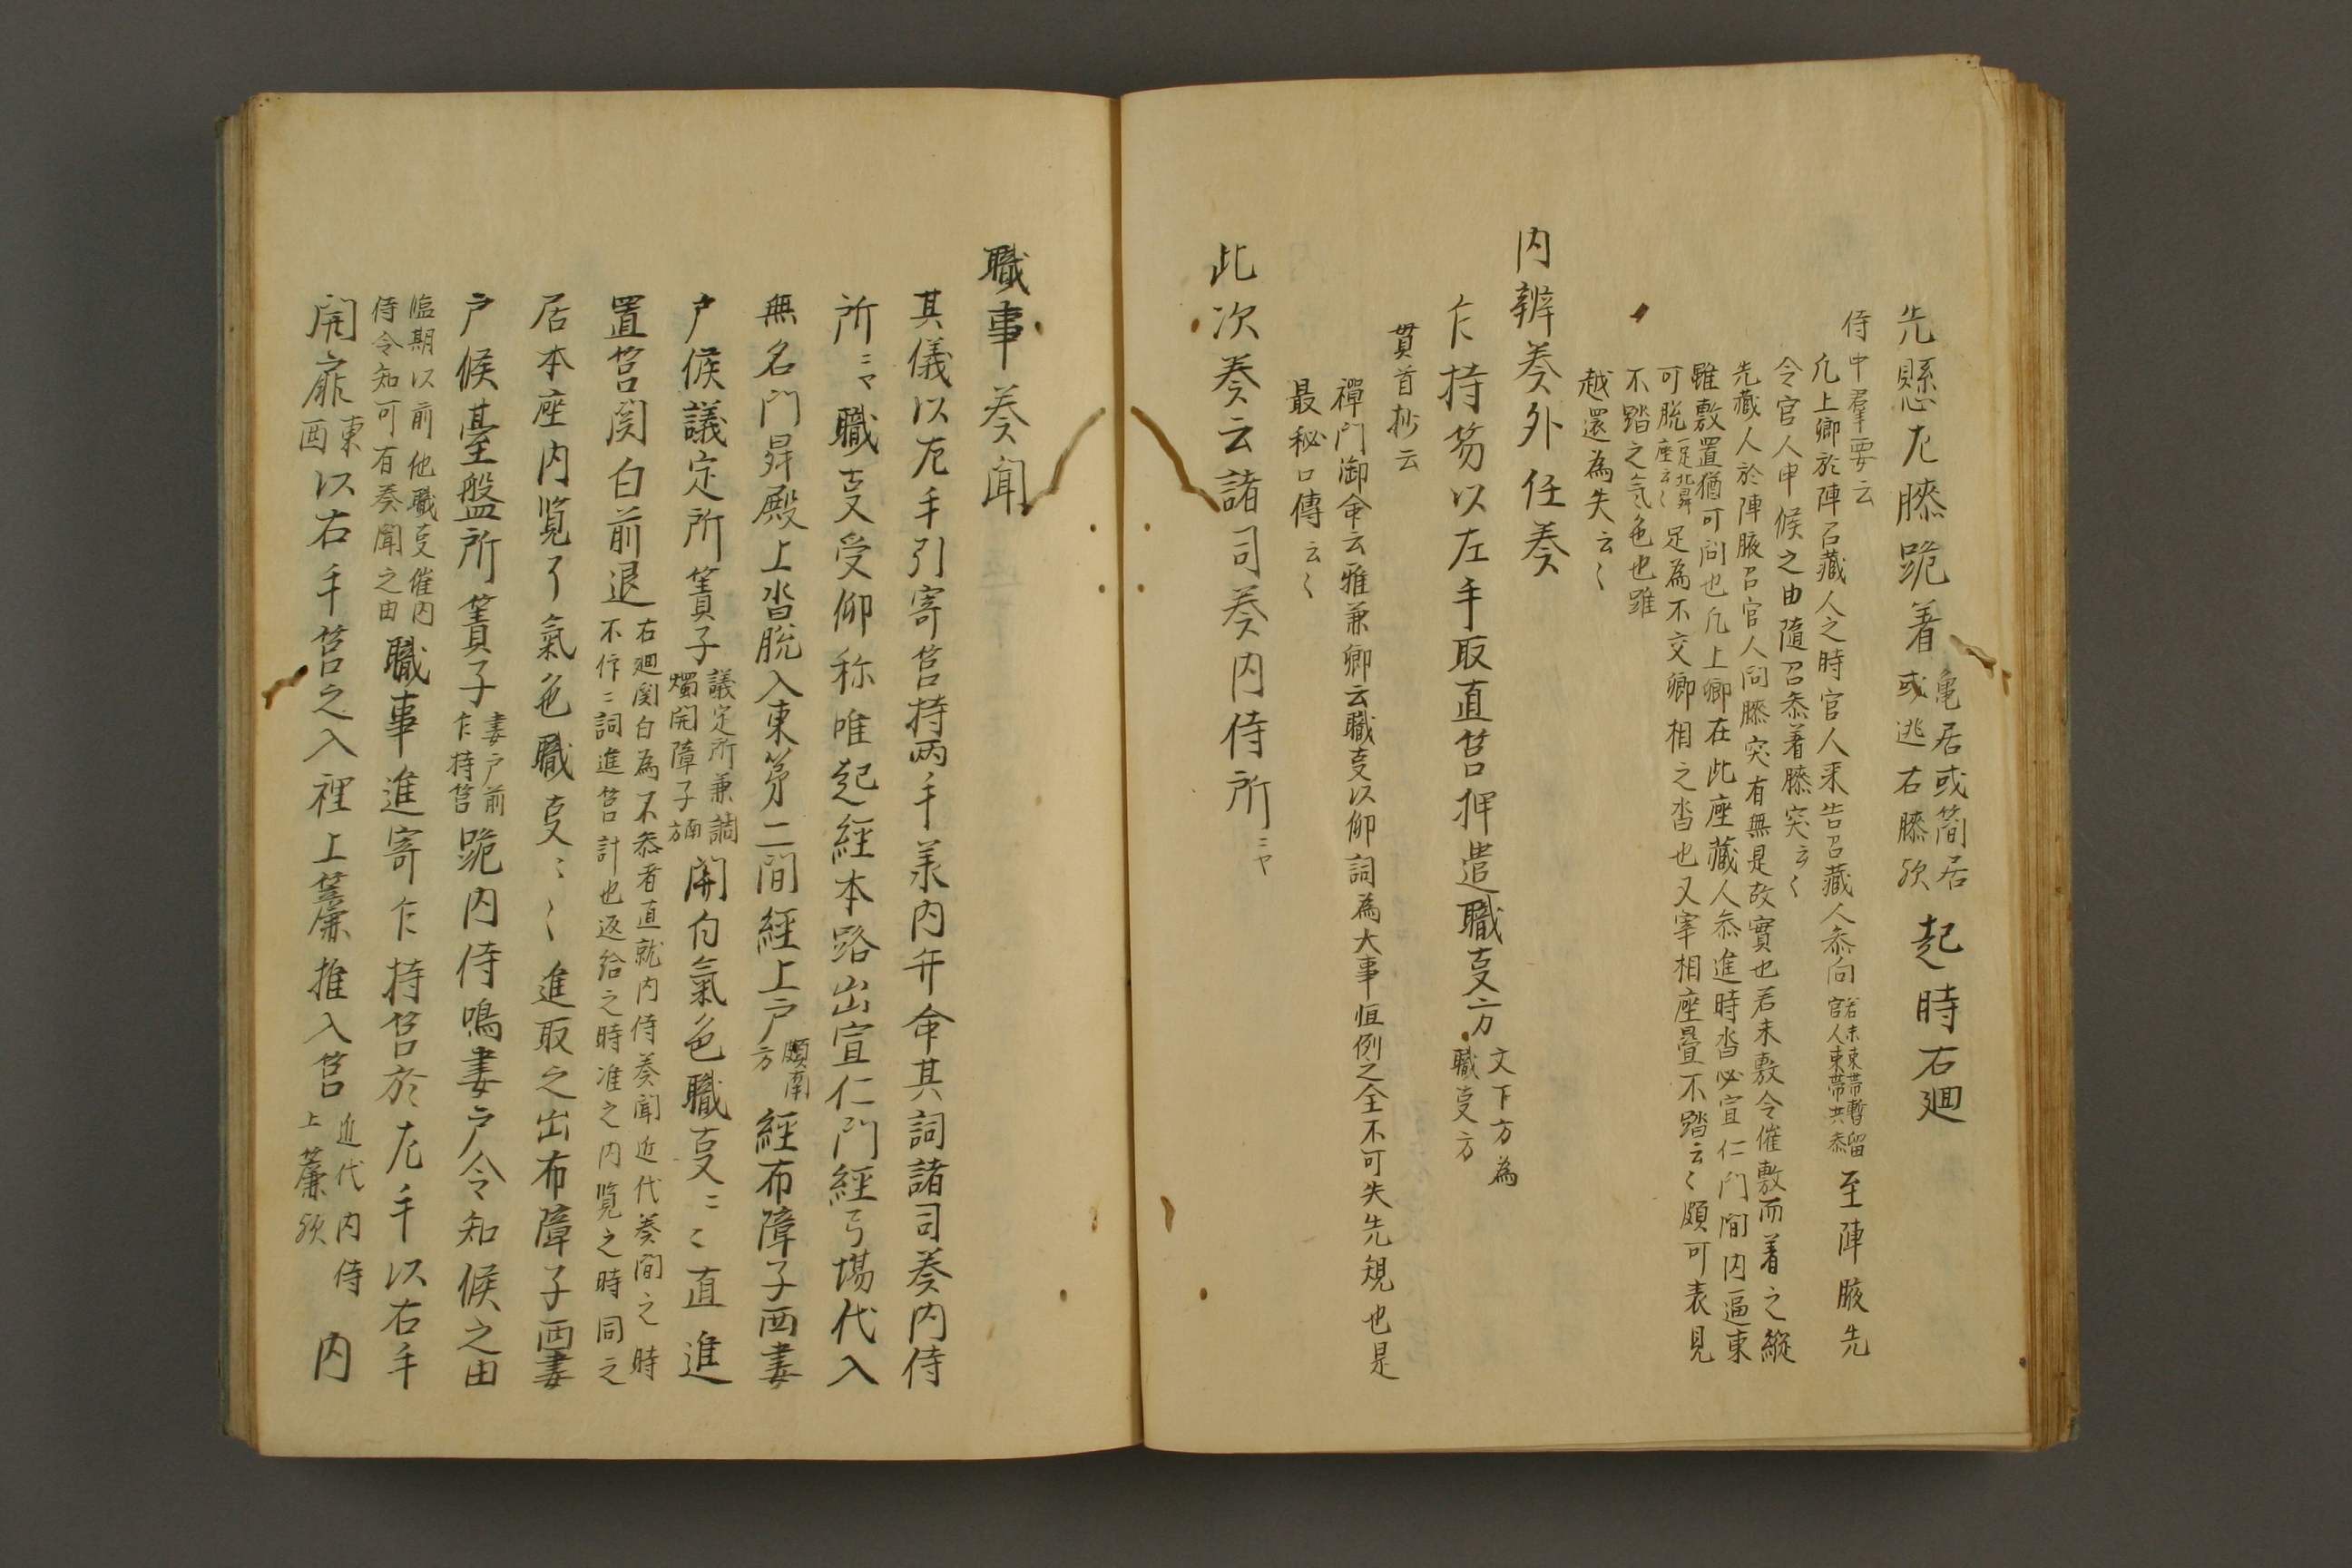 先懸左膝跪着亀居或簡居
或逃右膝欤起時右廻
侍中羣要云
凡上卿於陣召蔵人之時官人来告召蔵人参向若未束帯暫留
官人束帯共参至陣腋先
令官人申候之由随召参着膝突云〻
先蔵人於陣腋召官人問膝突有無是故實也若未敷令催敷而着之縦
雖敷置猶可問也凡上卿在此座蔵人参進時沓必宣仁門間内逼東
可脱一足北昇
座云〻足為不交卿相之沓也又宰相座畳不踏云〻頗可表見
不踏之気色也雖
越還為失云〻
内辨奏外任奏
乍持笏以左手取直筥押遣職亊方文下方為
職亊方
貫首抄云
禪門御命云雅兼卿云職亊以仰詞為大事恒例之全不可失先規也是
最秘口傳云〻
此次奏云諸司奏内侍所ニヤ
職事奏聞
其儀以左手引寄筥持兩手羕内弁命其詞諸司奏内侍
所ニマ職亊受仰称唯起經本路出宣仁門經弓場代入
無名門昇殿上沓脱入東第二間經上戸頗南
方經布障子西妻
戸候議定所簀子議定所兼調
燭開障子南
方開白氣色職亊ニミ直進
置筥関白前退右廻関白為不参者直就内侍奏聞近代奏間之時
不作ニ詞進筥計也返給之時准之内覧之時同之
居本座内覧了氣色職亊ミ〻進取之出布障子西妻
戸候臺盤所簀子妻戸前
乍持筥跪内侍鳴妻戸令知候之由
臨期以前他職亊催内
侍令知可有奏聞之由職事進寄乍持筥於左手以右手
開扉東
西以右手筥之入裡上簾推入筥近代内侍
上簾欤内